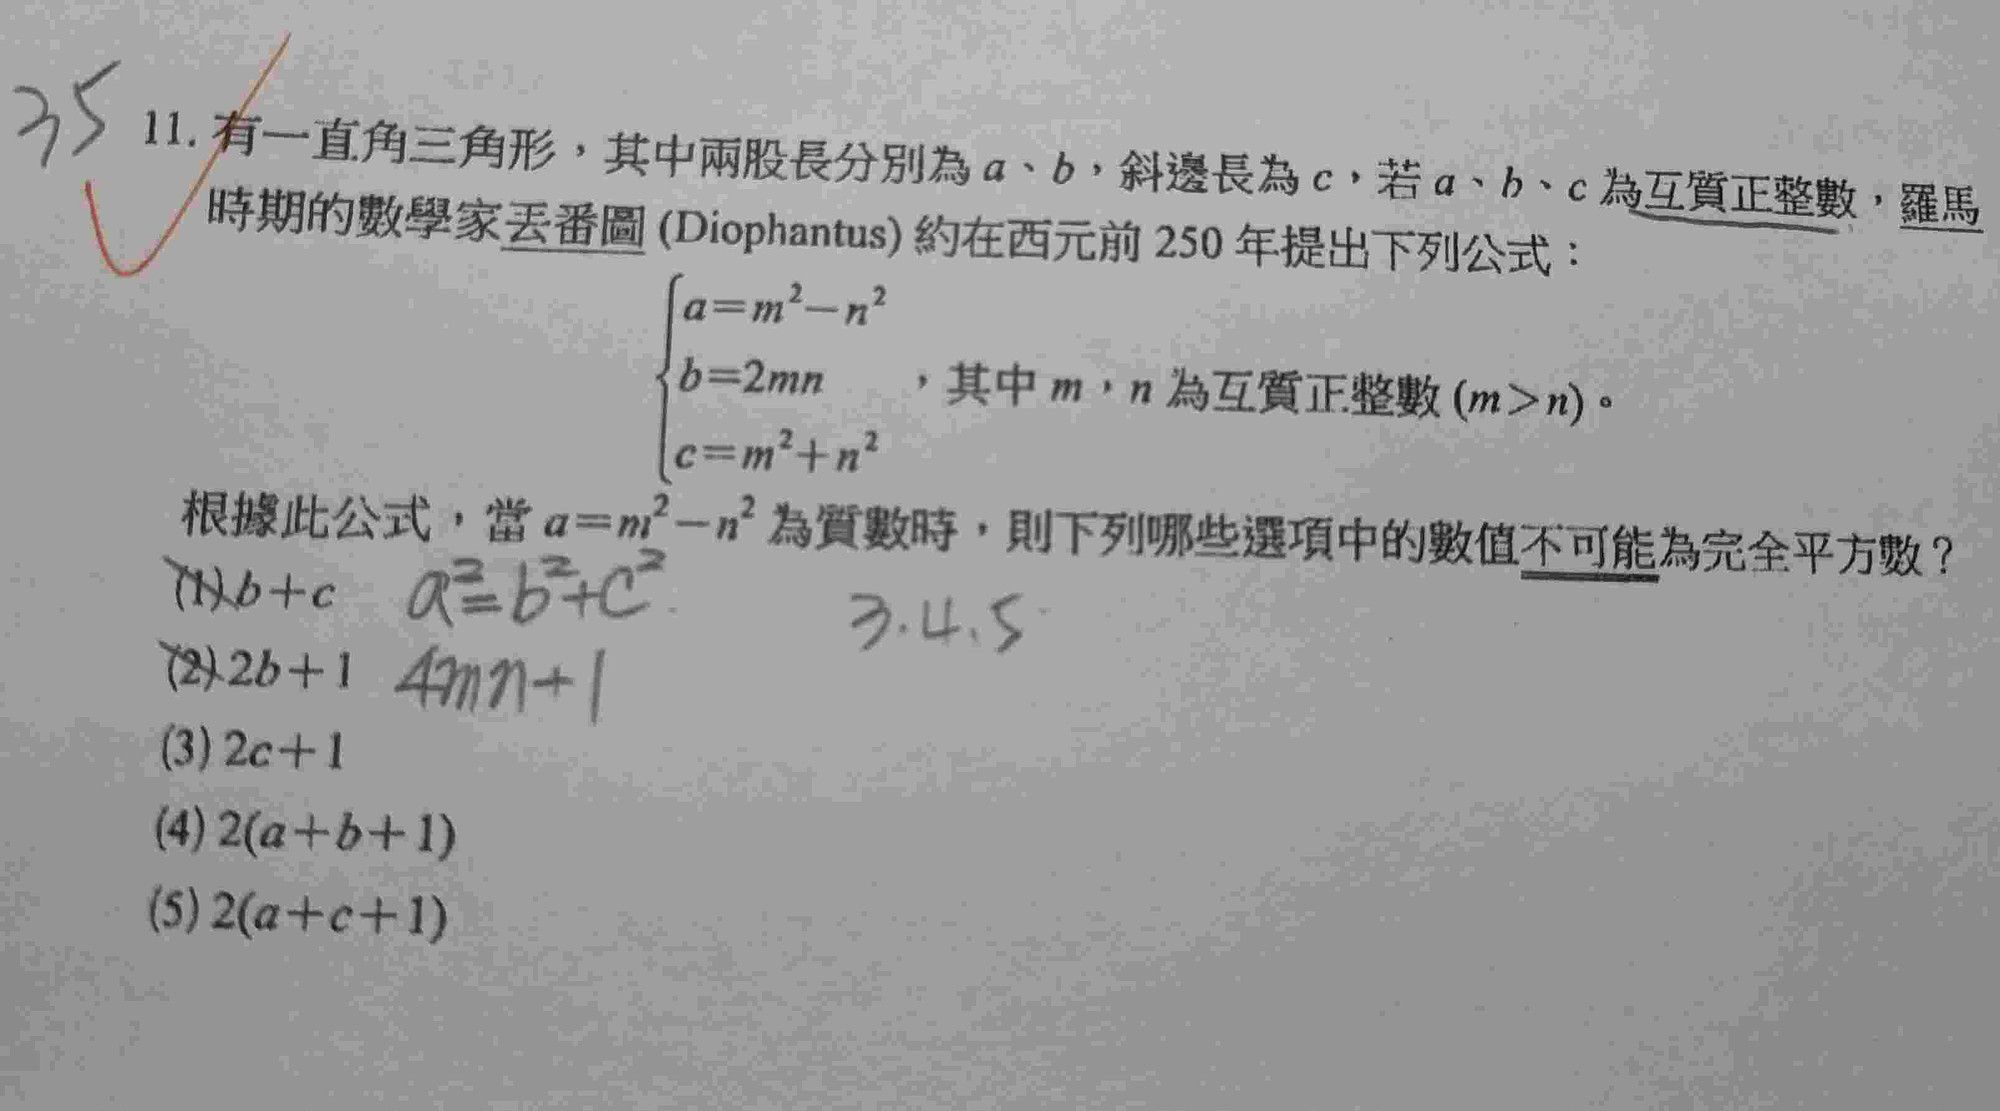 35
11. 有一直角三角形，其中兩股長分別為 a、b，斜邊長為 c，若 a、b、c 為互質正整數，羅馬
時期的數學家丟番圖 (Diophantus) 約在西元前 250 年提出下列公式：
a=m²－n²
b=2mn ，其中 m，n 為互質正整數 (m>n)。
c=m²+n²
根據此公式，當 a=m²－n² 為質數時，則下列哪些選項中的數值不可能為完全平方數？
(1) b+c a²=b²+c² 3.4.5
(2) 2b+1 4mn+1
(3) 2c+1
(4) 2(a+b+1)
(5) 2(a+c+1)